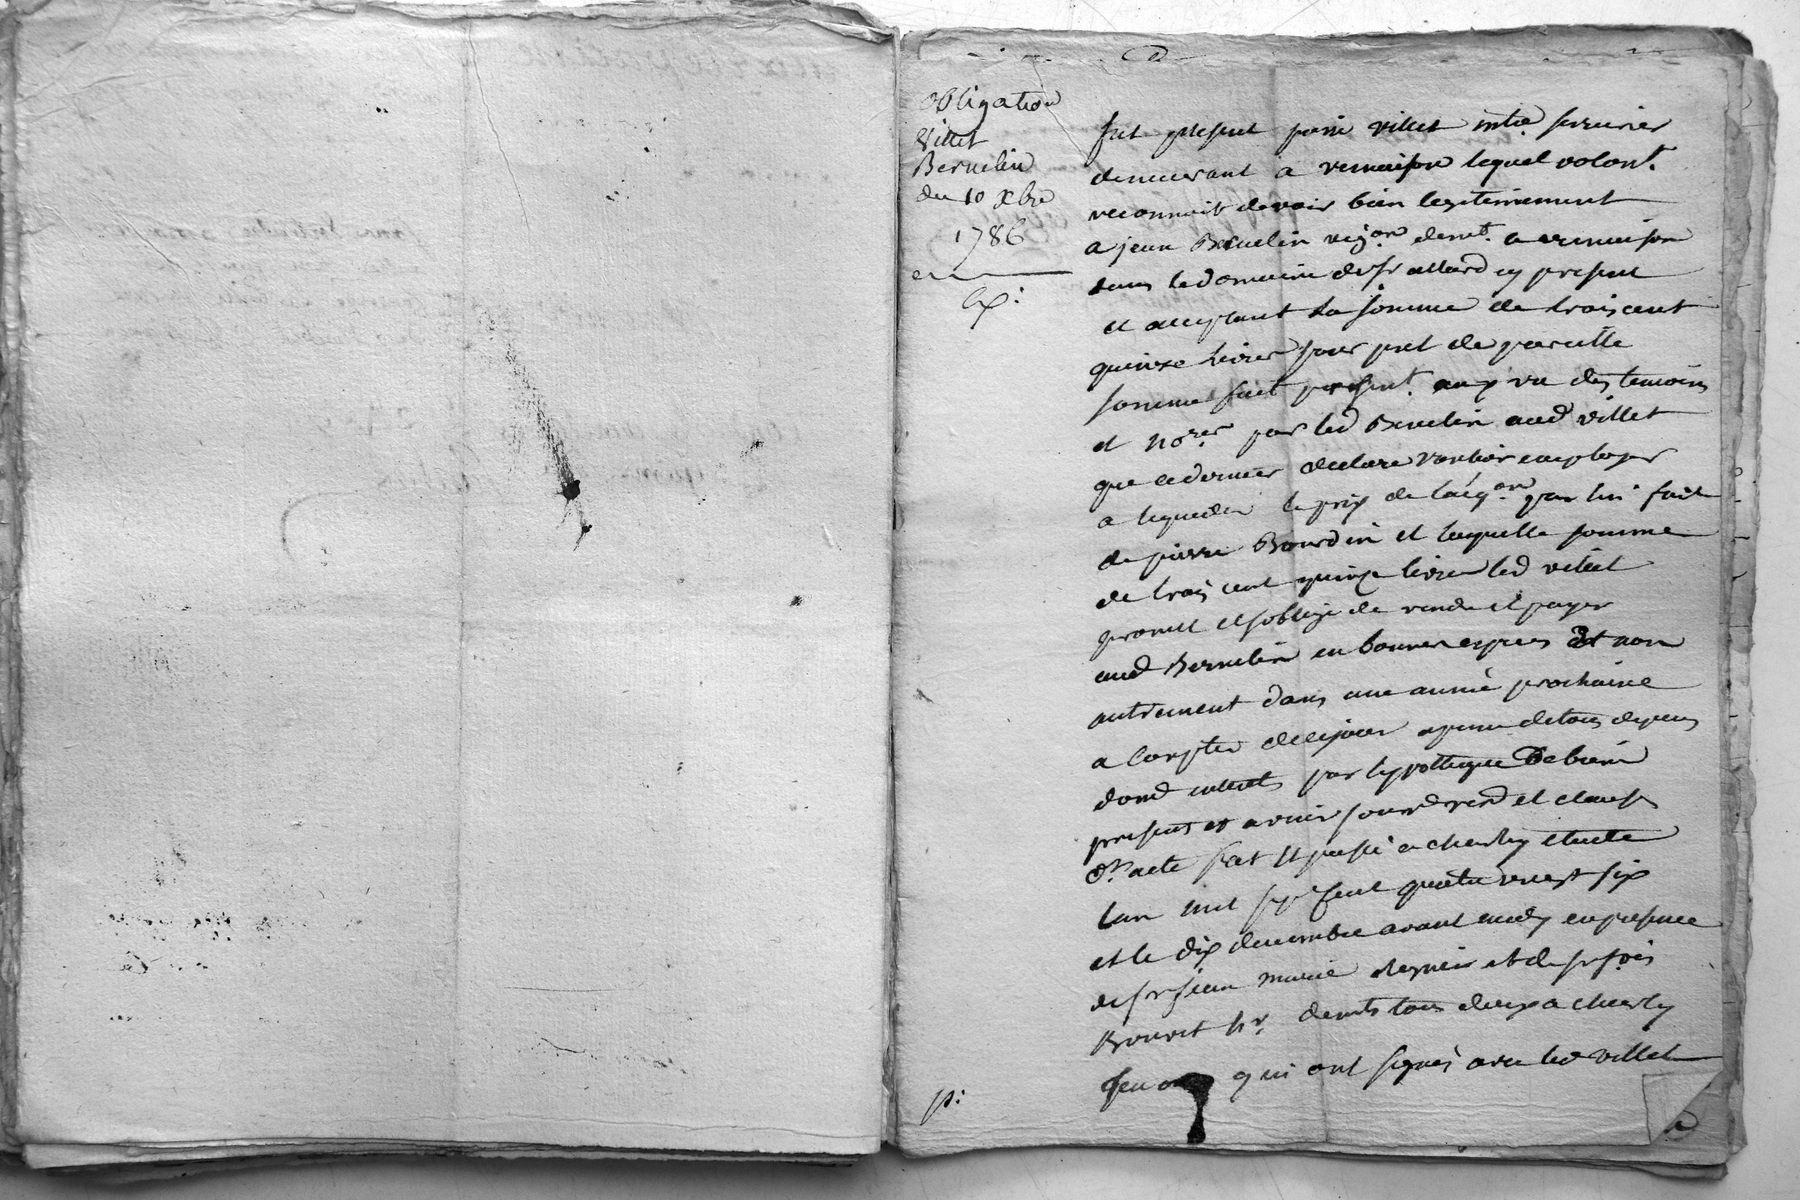 obligation
Villet
Bernelin
du 10 Xbre
1786
fut present pierre villet mtre serrurier
demeurant a remaison lequel volont.
reconnoit devoir bien legitimement
a jean Bernelin vigon demt. a remaison
dans le domaine de sr allard cy present
et acceptant la somme de trois cent
quinze livres pour pret de pareille
somme fait present. aux vu des temoins
et nores par led Bernelin aud villet
que ce dernier declare vouloir employer
a liquider le prix de lacqon par lui fait
de pierre Bourdin et laquelle somme
de trois cent quinze livres led villet
promet et soblige de rendre et payer
aud Bernelin en bonnes especes et non
autrement dans une année prochaine
a compter de ce jour a peine de tous depens
domd interets par hypotteque de biens
presents et avenir soum renond et clauses
dt acte fait et passé a cherly etude
lan mil sept cent quatre vingt six
et le dix decembre avant midy en presence
de sr jean marie et de sr fois
demts tous deux a cherly
temoins qui ont signés avec led villet